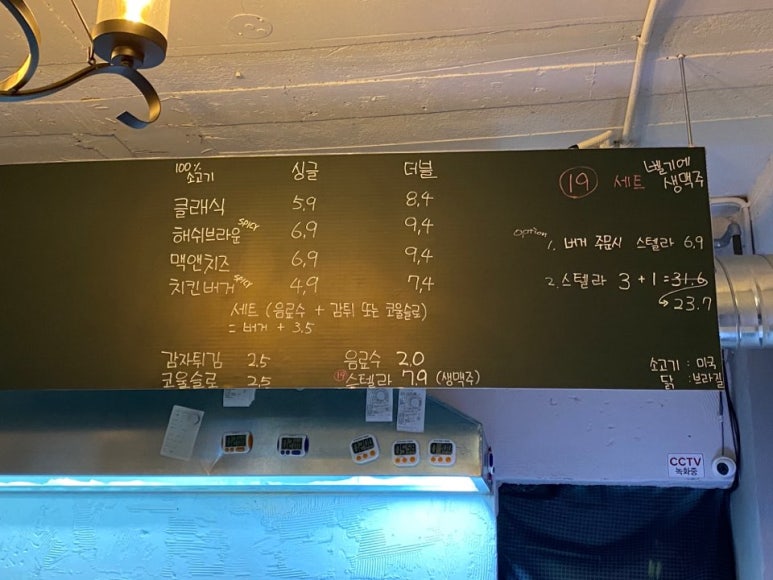 100% 소고기 싱글 더블
클래식 5,9 8,4
해쉬브라운 SPICY 6,9 9,4
맥앤치즈 6,9 9,4
치킨버거 SPICY 4,9 7,4
세트 (음료수 + 감튀 또는 코울슬로)
= 버거 + 3.5
감자튀김 2.5 음료수 2.0
코울슬로 2.5 19 스텔라 7.9 (생맥주)
19 세트 벨기에 생맥주
option
1. 버거 주문시 스텔라 6,9
2. 스텔라 3 + 1 = 31.6
23.7
소고기 : 미국
닭 : 브라질
CCTV
녹화중